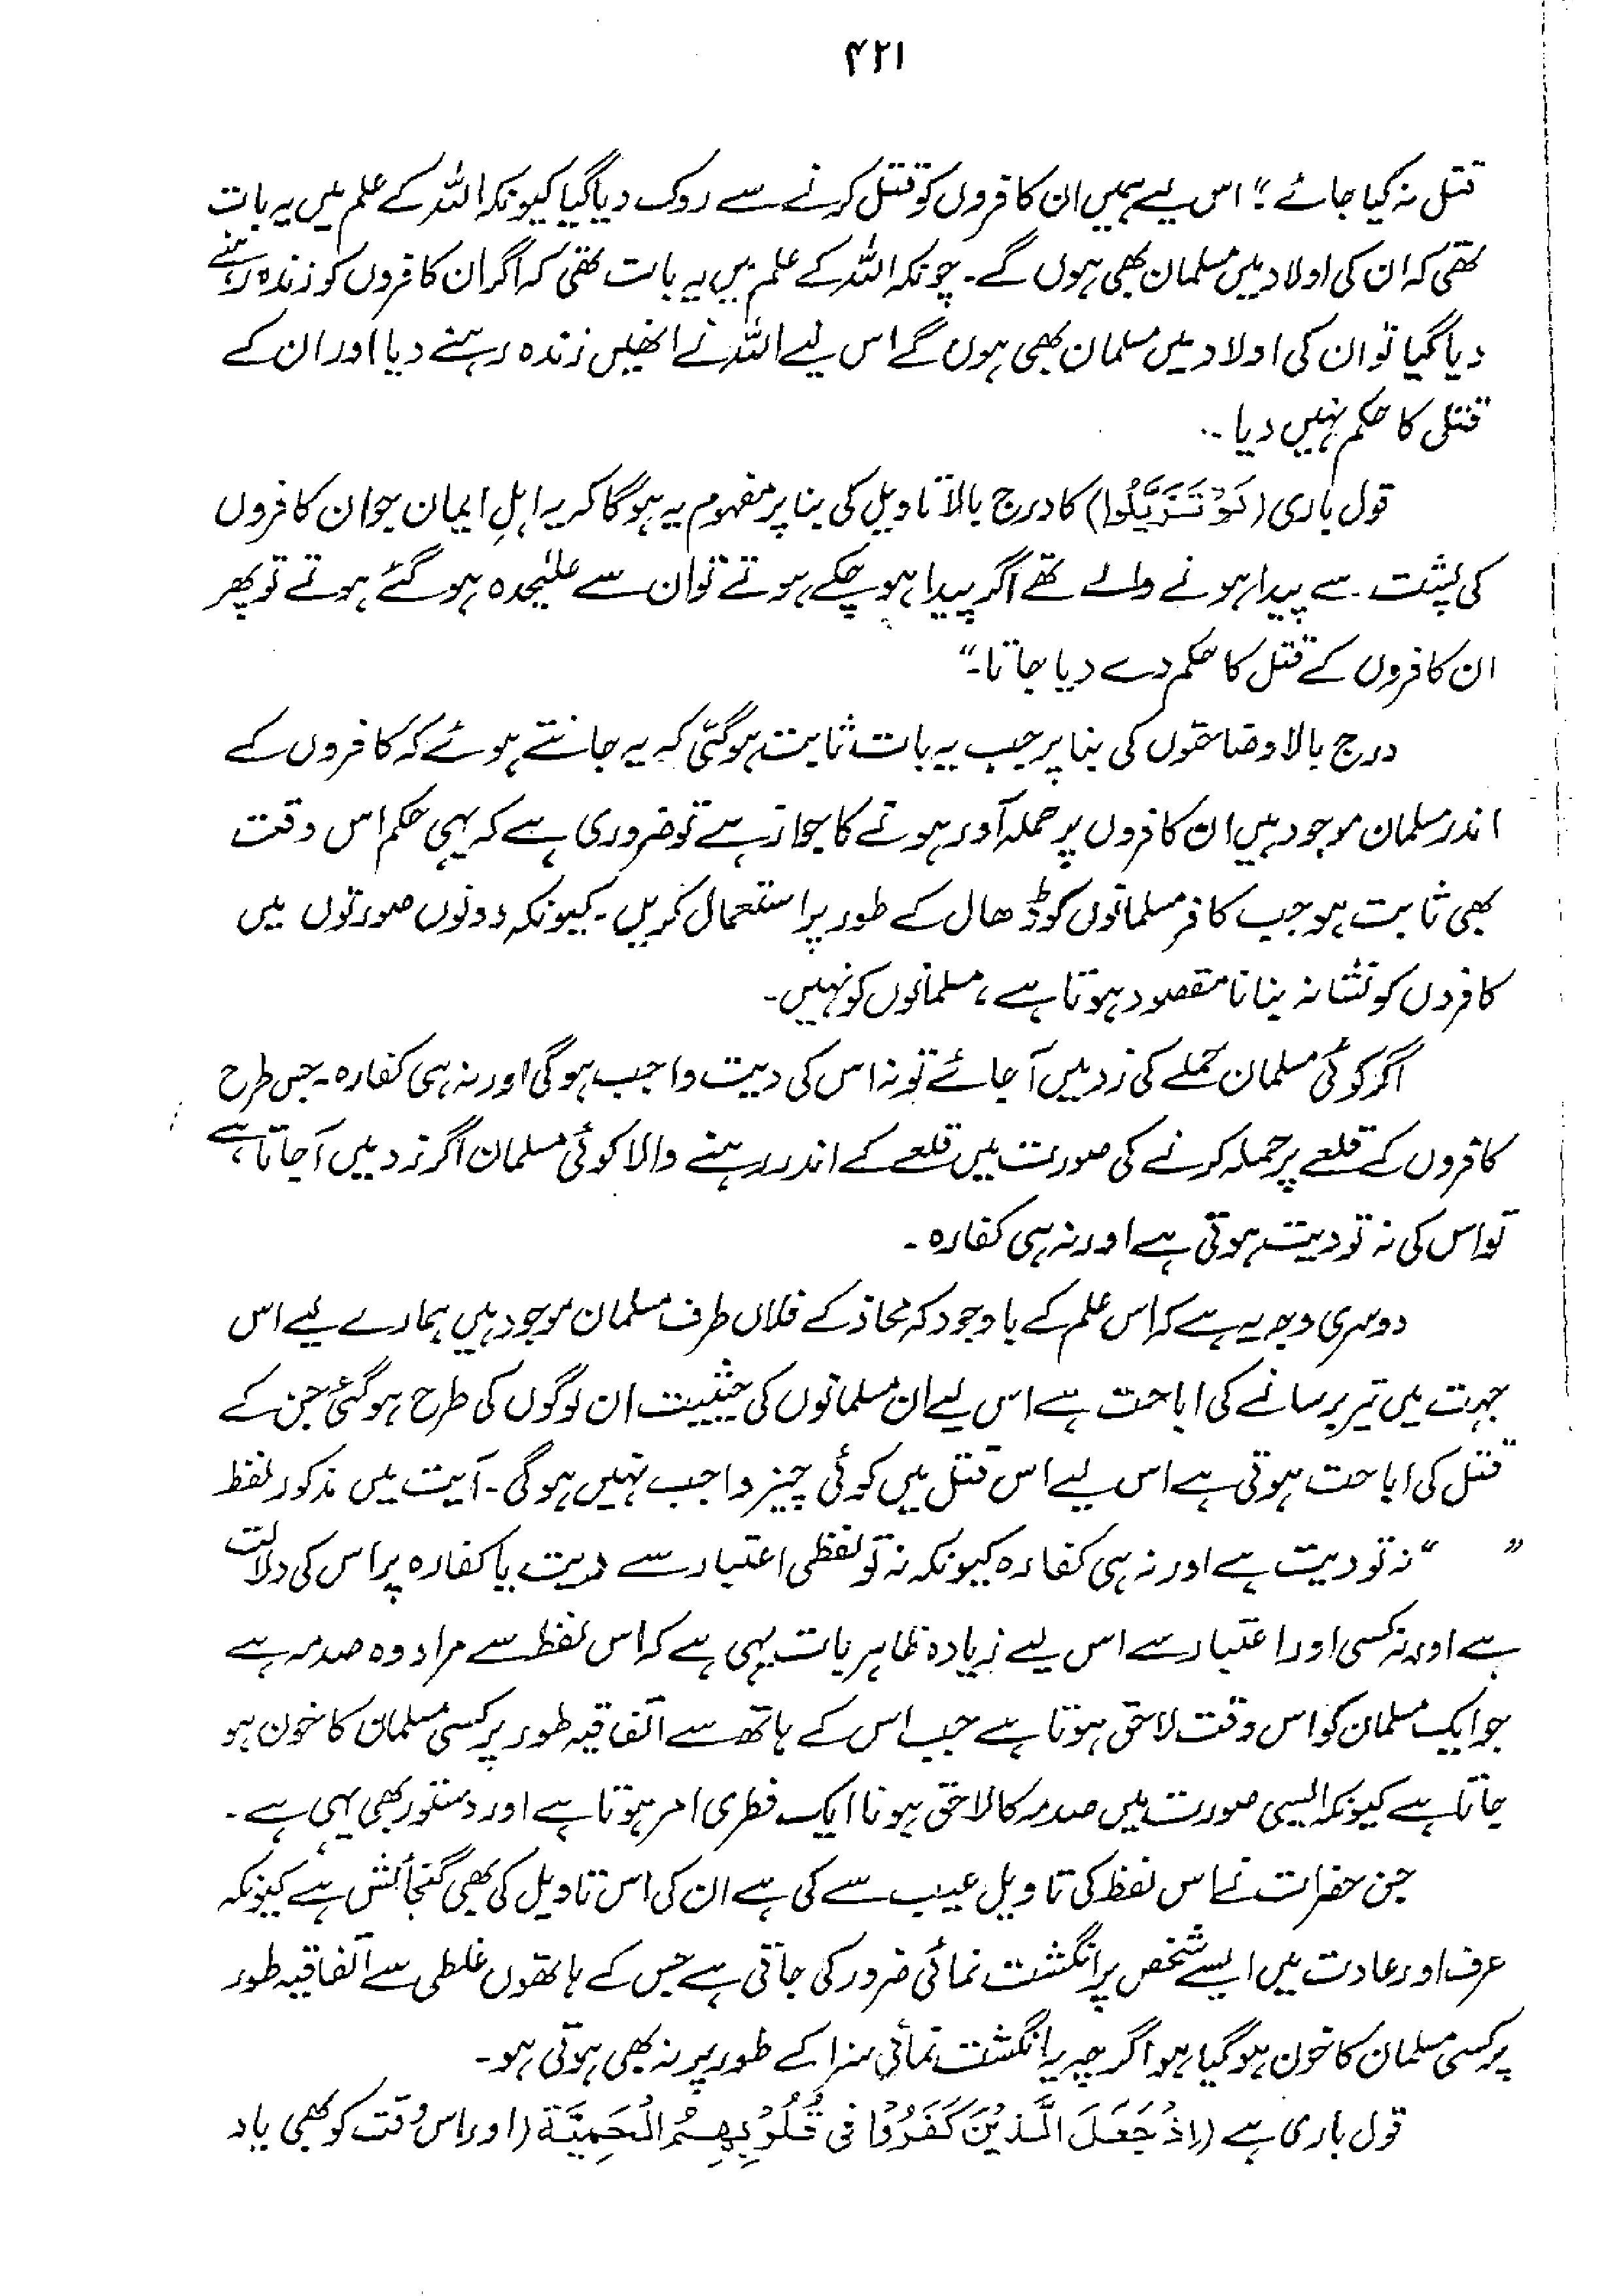 ۴۲۱
قتل نہ کیا جائے“ اس لیے ہمیں ان کافروں کو قتل کرنے سے روک دیا گیا کیونکہ اللہ کے علم میں یہ بات
تھی کہ ان کی اولاد میں مسلمان بھی ہوں گے۔ چونکہ اللہ کے علم میں یہ بات تھی کہ اگر ان کافروں کو زندہ رہنے
دیا گیا تو ان کی اولاد میں مسلمان بھی ہوں گے اس لیے اللہ نے انھیں زندہ رہنے دیا اور ان کے
قتل کا حکم نہیں دیا۔
قول باری (لَوْ تَزَيَّلُوا) کا درج بالا تاویل کی بنا پر مفہوم یہ ہوگا کہ یہ اہلِ ایمان جو ان کافروں
کی پشت سے پیدا ہونے والے تھے اگر پیدا ہو چکے ہوتے تو ان سے علیٰحدہ ہو گئے ہوتے تو پھر
ان کافروں کے قتل کا حکم دے دیا جاتا۔“
درج بالا وضاحتوں کی بنا پر جب یہ بات ثابت ہو گئی کہ یہ جانتے ہوئے کہ کافروں کے
اندر مسلمان موجود ہیں ان کافروں پر حملہ آور ہونے کا جواز ہے تو ضروری ہے کہ یہی حکم اس وقت
بھی ثابت ہو جب کافر مسلمانوں کو ڈھال کے طور پر استعمال کریں۔ کیونکہ دونوں صورتوں میں
کافروں کو نشانہ بنانا مقصود ہوتا ہے، مسلمانوں کو نہیں۔
اگر کوئی مسلمان حملے کی زد میں آ جائے تو نہ اس کی دیت واجب ہوگی اور نہ ہی کفارہ۔ جس طرح
کافروں کے قلعے پر حملہ کرنے کی صورت میں قلعے کے اندر رہنے والا کوئی مسلمان اگر زد میں آ جاتا ہے
تو اس کی نہ تو دیت ہوتی ہے اور نہ ہی کفارہ۔
دوسری وجہ یہ ہے کہ اس علم کے باوجود کہ محاذ کے فلاں طرف مسلمان موجود ہیں ہمارے لیے اس
جہت میں تیر برسانے کی اباحت ہے اس لیے ان مسلمانوں کی حیثیت ان لوگوں کی طرح ہو گئی جن کے
قتل کی اباحت ہوتی ہے اس لیے اس قتل میں کوئی چیز واجب نہیں ہوگی۔ آیت میں مذکور لفظ
” “ نہ تو دیت ہے اور نہ ہی کفارہ کیونکہ نہ تو لفظی اعتبار سے دیت یا کفارہ پر اس کی دلالت
ہے اور نہ کسی اور اعتبار سے اس لیے زیادہ ظاہر بات یہی ہے کہ اس لفظ سے مراد وہ صدمہ ہے
جو ایک مسلمان کو اس وقت لاحق ہوتا ہے جب اس کے ہاتھ سے اتفاقیہ طور پر کسی مسلمان کا خون ہو
جاتا ہے کیونکہ ایسی صورت میں صدمہ کا لاحق ہونا ایک فطری امر ہوتا ہے اور دستور بھی یہی ہے۔
جن حضرات نے اس لفظ کی تاویل عیب سے کی ہے ان کی اس تاویل کی بھی گنجائش ہے کیونکہ
عرف اور عادت میں ایسے شخص پر انگشت نمائی ضرور کی جاتی ہے جس کے ہاتھوں غلطی سے اتفاقیہ طور
پر کسی مسلمان کا خون ہو گیا ہو اگرچہ یہ انگشت نمائی سزا کے طور پر نہ بھی ہوتی ہو۔
قول باری ہے (اِذْ جَعَلَ الَّذِيْنَ كَفَرُوْا فِى قُلُوْبِهِمُ الْحَمِيَّةَ (اور اس وقت کو بھی یاد